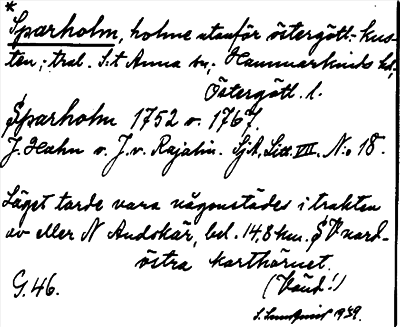 *
Sparholm, holme utanför östergötl.-kus-
ten; trol. S:t Anna sn; Hammarkinds hd;
Östergötl. l.
Sparholm 1752 o. 1767.
J. Hahn o. J. v. Rajalin. SjA, Litt. VII. N:o 18.
Läget torde vara någonstädes i trakten
av eller N Andokär, bel. 14,8 km. SV nord-
östra karthörnet.
G. 46.
(Vänd!)
1939.